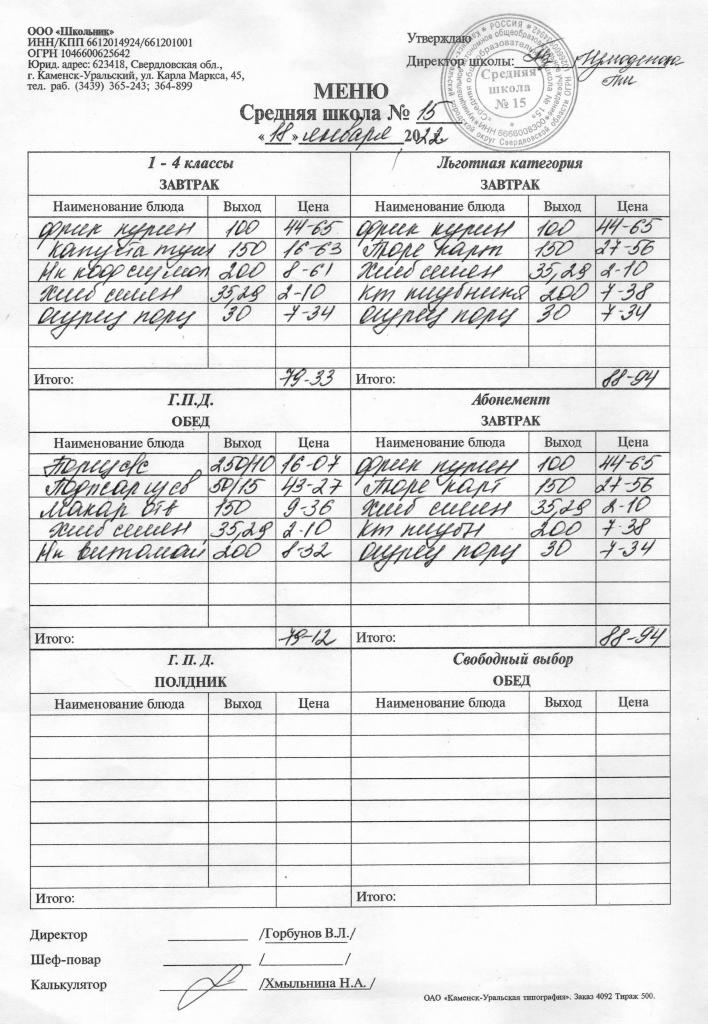 ООО «Школьник»
ИНН/КПП 6612014924/661201001
ОГРН 1046600625642
Юрид. адрес: 623418, Свердловская обл.,
г. Каменск-Уральский, ул. Карла Маркса, 45,
тел. раб. (3439) 365-243; 364-899
Утверждаю
Директор школы:
Средняя
школа
№ 15
МЕНЮ
Средняя школа № 15
«18» января 2022
1 - 4 классы
ЗАВТРАК
Наименование блюда Выход Цена
фрик курин 100 44-65
капуста туш 150 16-63
200 8-61
Хлеб 35,29 2-10
огурец порц 30 7-34
Итого: 79-33
Льготная категория
ЗАВТРАК
Наименование блюда Выход Цена
фрик курин 100 44-65
Пюре карт 150 27-56
Хлеб 35,29 2-10
Кт клубника 200 7-38
огурец порц 30 7-34
Итого: 88-94
Г.П.Д.
ОБЕД
Наименование блюда Выход Цена
250/10 16-07
50/15 43-27
макар отв 150 9-36
Хлеб 35,29 2-10
Нк витамой 200 8-32
Итого: 79-12
Абонемент
ЗАВТРАК
Наименование блюда Выход Цена
фрик курин 100 44-65
Пюре карт 150 27-56
Хлеб 35,29 2-10
Кт клубн 200 7-38
огурец порц 30 7-34
Итого: 88-94
Г. П. Д.
ПОЛДНИК
Наименование блюда Выход Цена
Итого:
Свободный выбор
ОБЕД
Наименование блюда Выход Цена
Итого:
Директор /Горбунов В.Л./
Шеф-повар / /
Калькулятор /Хмыльнина Н.А. /
ОАО «Каменск-Уральская типография». Заказ 4092 Тираж 500.